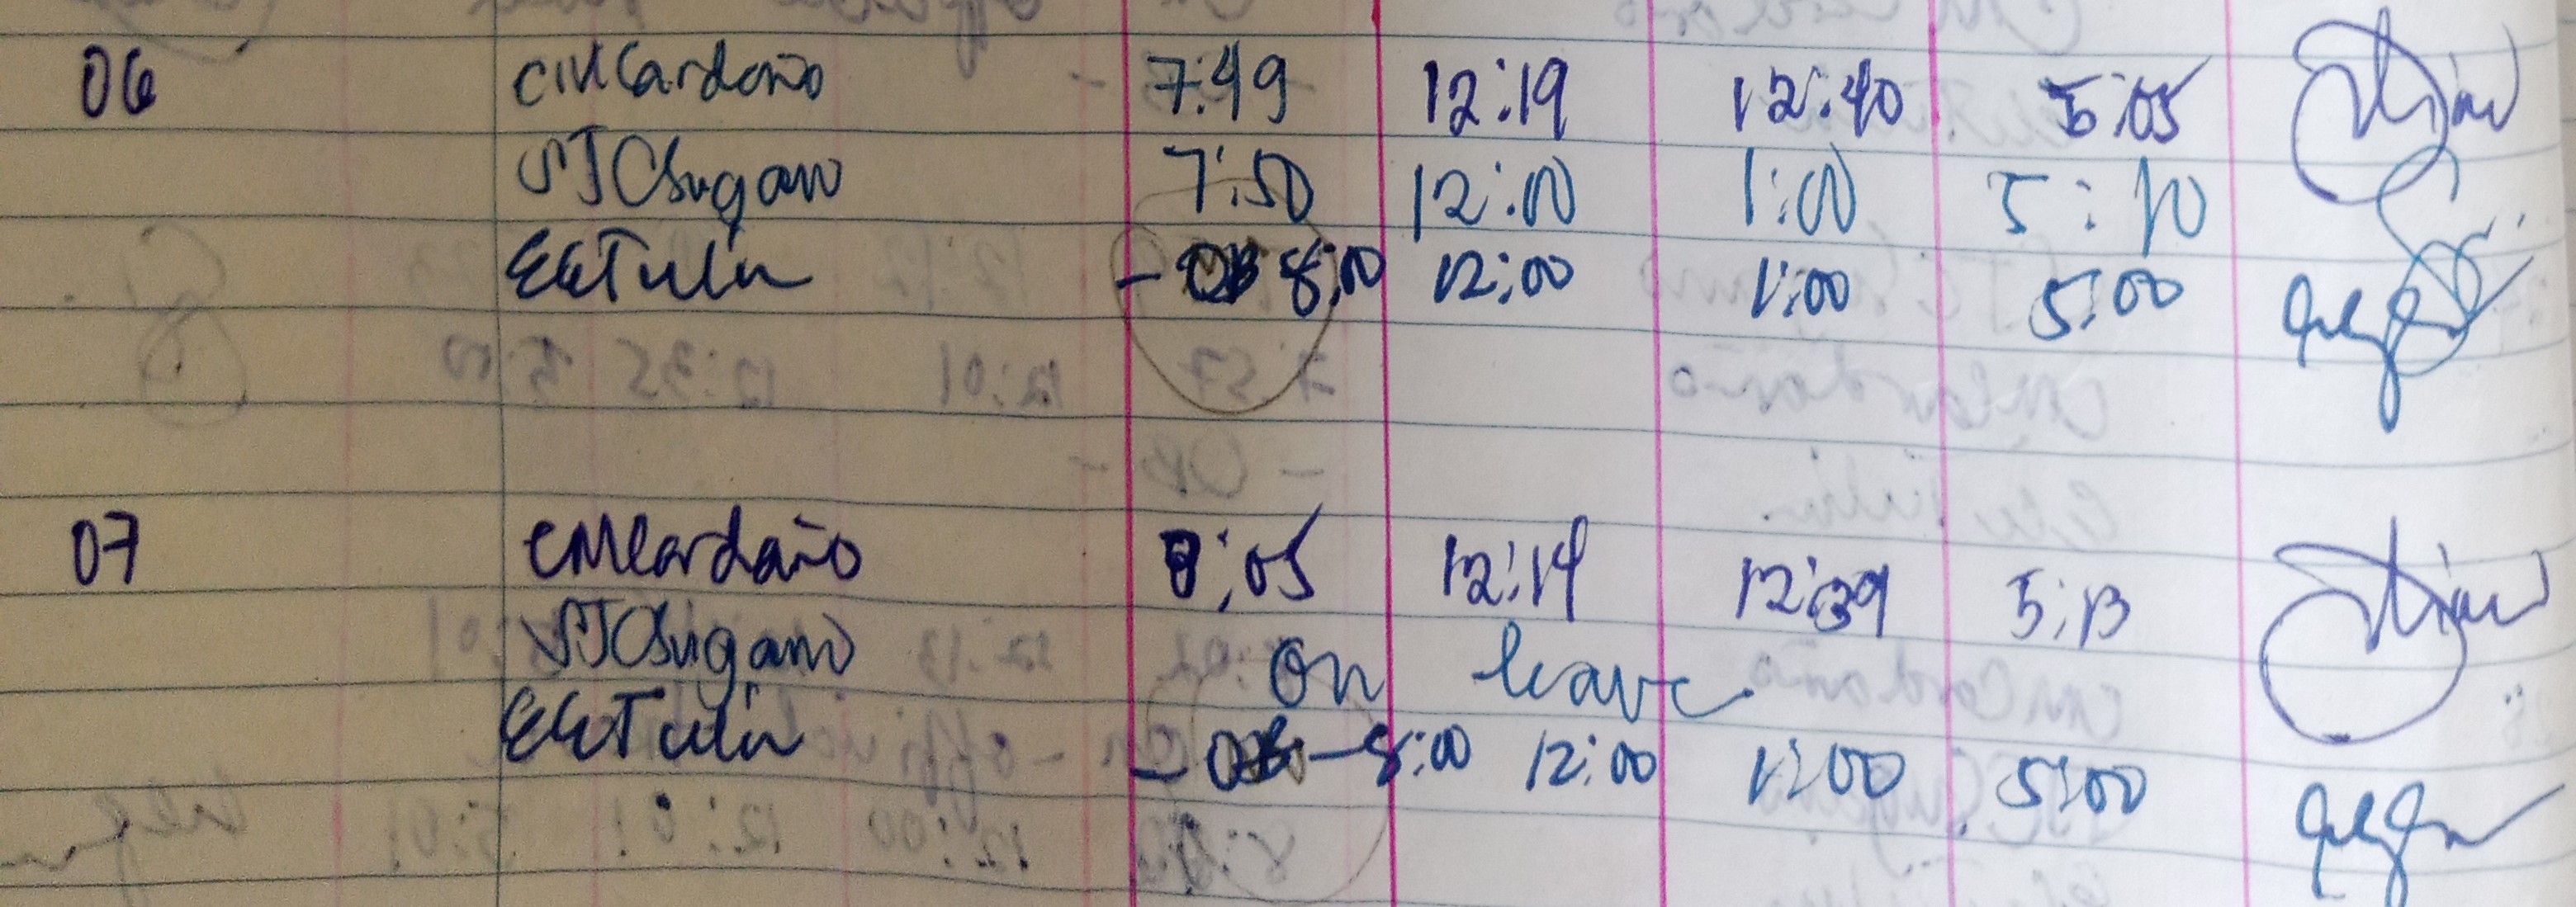 06 CMCardaño 7:49 12:19 12:40 5:05
SJCSugano 7:50 12:00 1:00 5:10
EGTulin - OB 8:00 12:00 1:00 5:00
07 CMCardaño 8:05 12:14 12:39 5:13
SJCSugano On leave
EGTulin - OB - 8:00 12:00 1:00 5:00